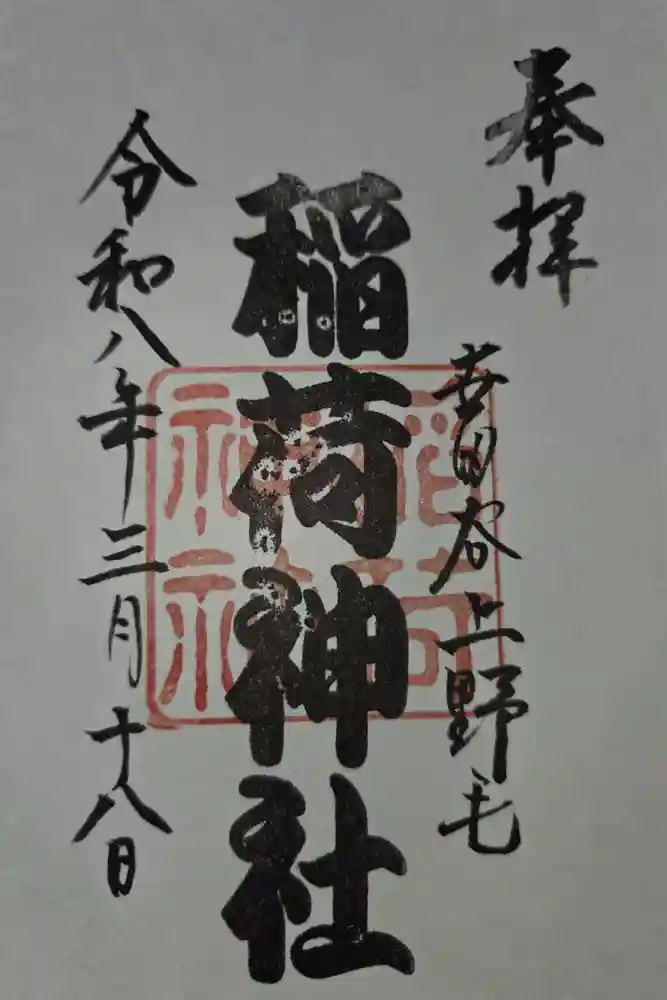 奉拝
世田谷上野毛
稲荷神社
稲荷神社
令和八年三月十八日